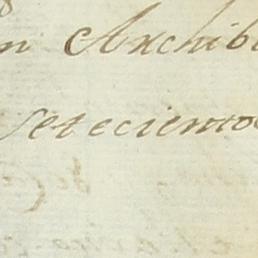 n Archib
seteciento